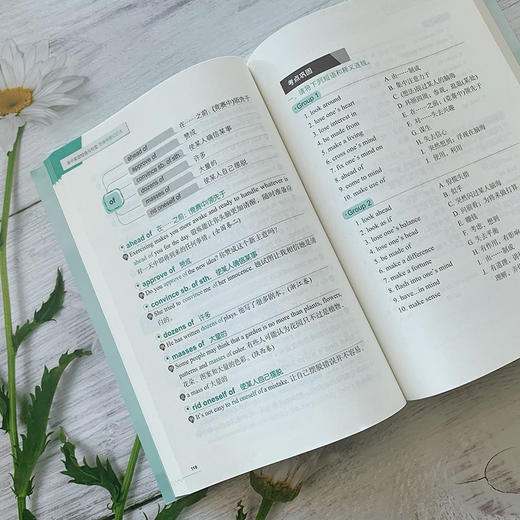 of
ahead of 在……之前;(竞赛中)领先于
approve of 赞成
convince sb. of sth. 使某人确信某事
dozens of 许多
masses of 大量的
rid oneself of 使某人自己摆脱
ahead of 在……之前;(竞赛中)领先于
Exercising makes you more awake and ready to handle whatever is
ahead of you for the day.
approve of 赞成
Do you approve of the new idea? 你赞成这个新主意吗?
convince sb. of sth. 使某人确信某事
She tried to convince me of her innocence. 她试图让我相信她是清
白的。
dozens of 许多
He has written dozens of plays. 他写了很多剧本。(浙江卷)
masses of 大量的
Some people may think that a garden is no more than plants, flowers,
patterns and masses of color. 有些人可能认为花园只不过是植物、
花朵、图案和大量的色彩。(陕西卷)
a mass of 大量的
rid oneself of 使某人自己摆脱
It's not easy to rid oneself of a mistake. 让自己摆脱错误并不容易。
118
考点巩固
请将下列短语和释义连线。
Group 1
1. look around
2. lose one's heart
3. lose interest in
4. be made from
5. cross one's mind
6. fix one's mind on
7. ahead of
8. come to mind
9. make a living
10. make use of
A. 由……制成
B. 集中注意力于
C. (想法)掠过某人的脑海
E. 在……之前;(竞赛中)领先于
F. 对……失去兴趣
G. 谋生
H. 失去信心
I. 突然想到,浮现在脑海
J. 使用,利用
Group 2
1. look ahead
2. look into
3. lose one's balance
4. lose one's head
5. be made of
6. make a difference
7. make a fortune
8. flash into one's mind
9. have...in mind
10. make sense
A. 惊慌失措
B. 起浮
C. 突然闪过某人脑海
E. 调查
F. 考虑,想到
G. 失去平衡
I. 由……制成